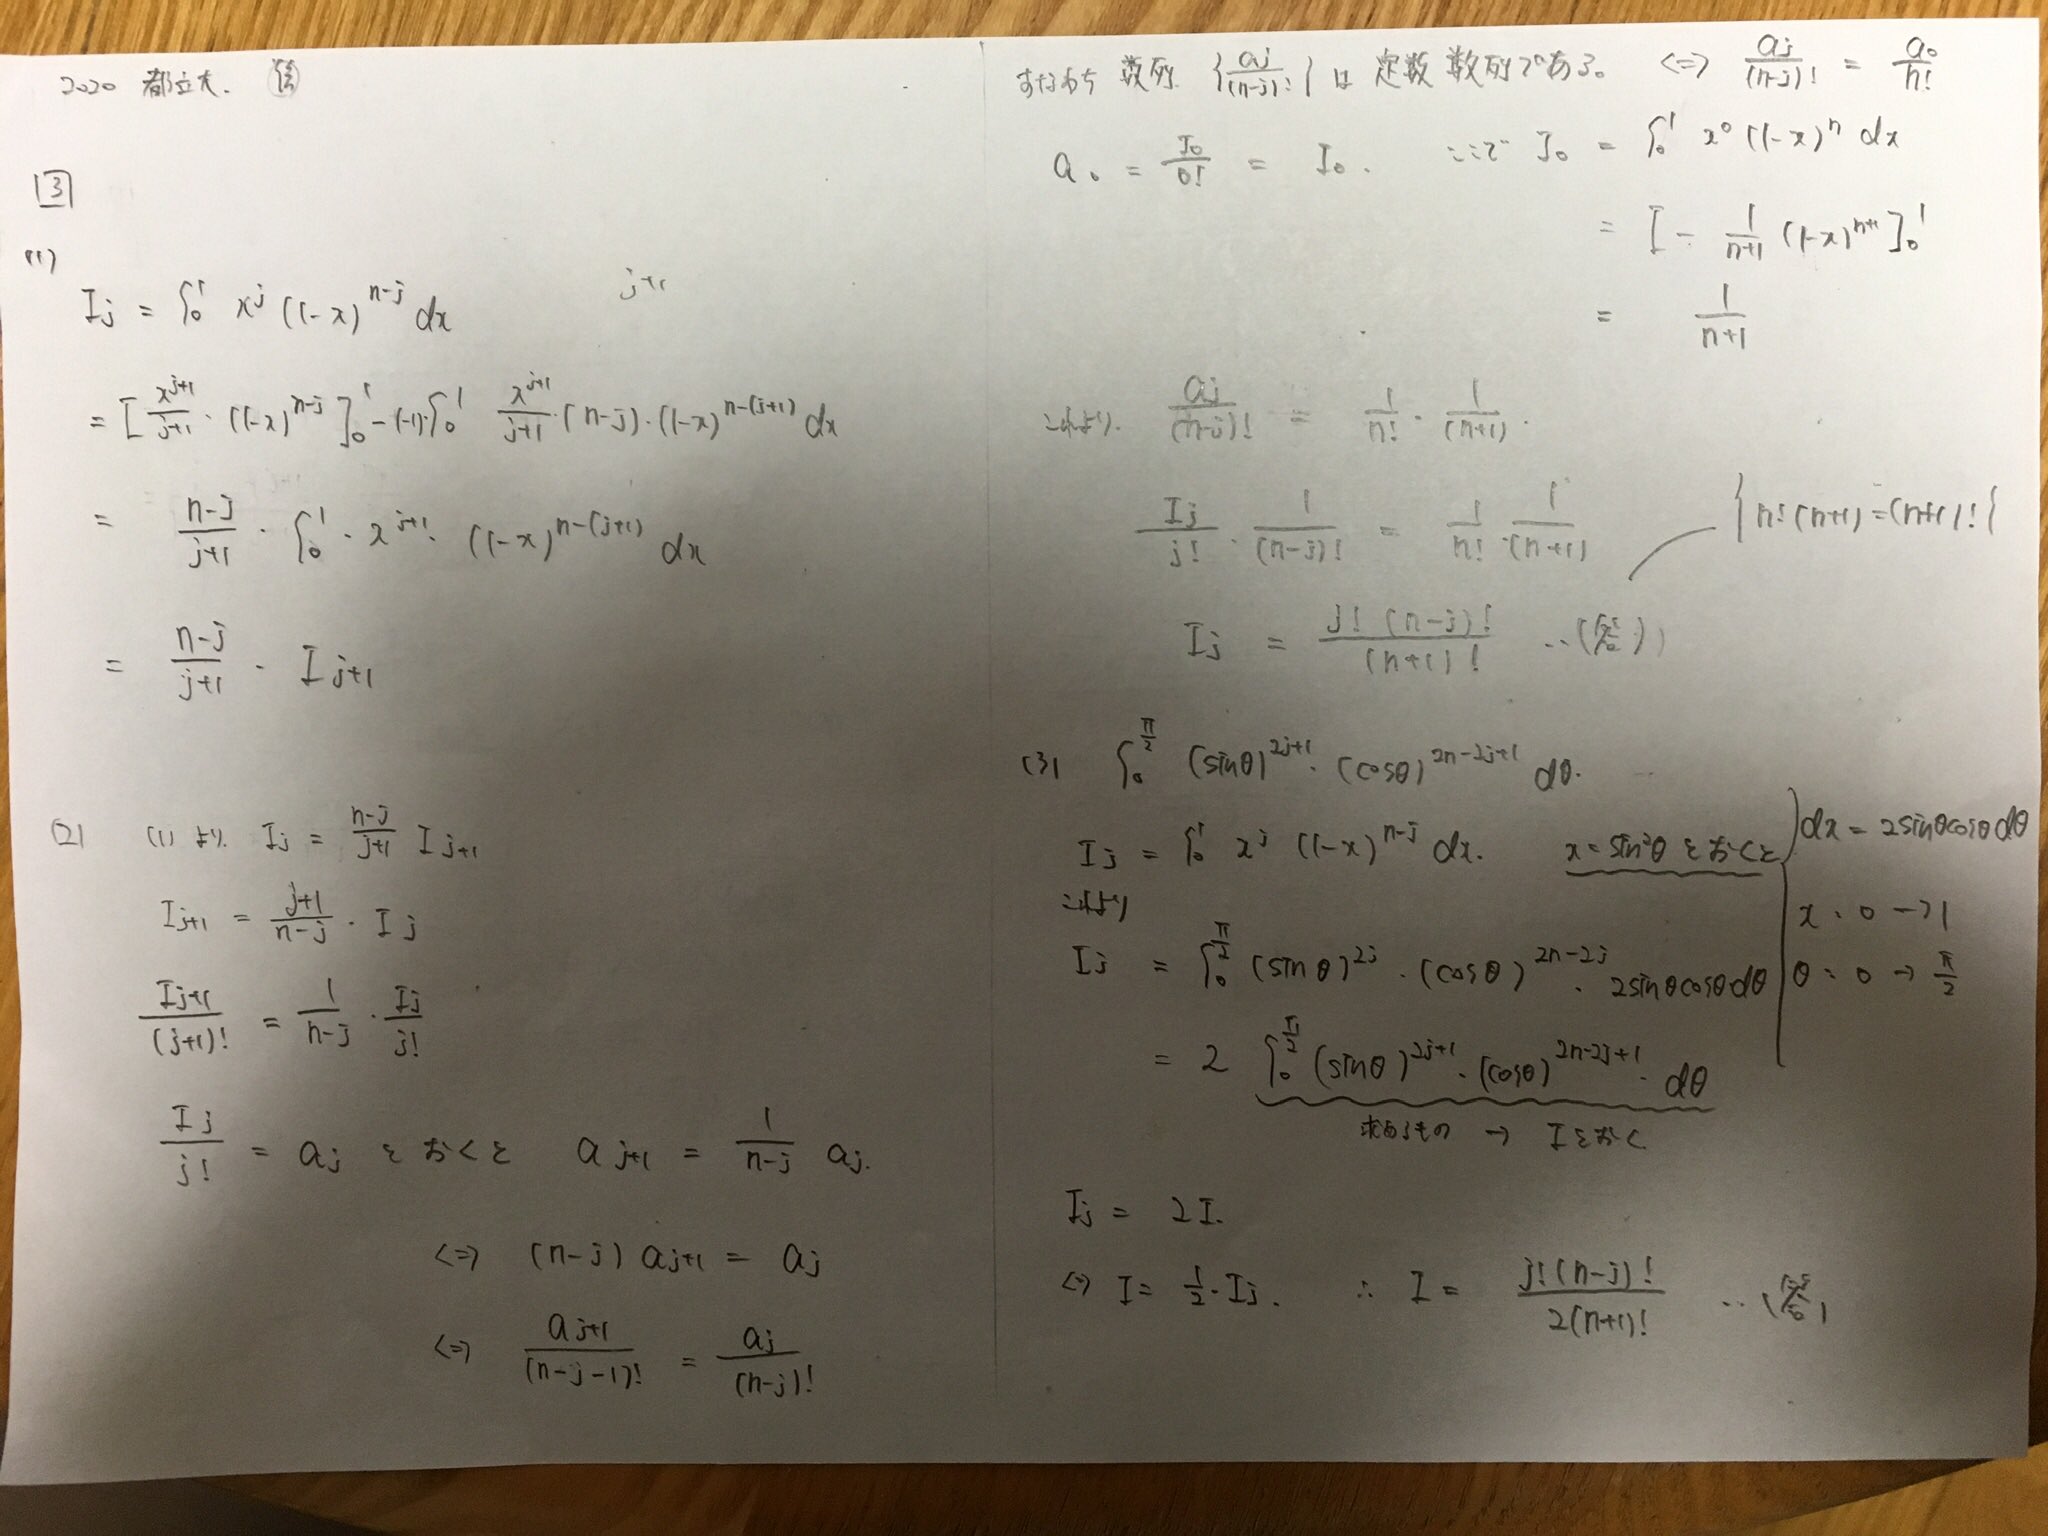 2020 都立大.
[3]
(1)
I_j = ∫_0^1 x^j (1-x)^{n-j} dx
j+1
= [ x^{j+1}/(j+1) · (1-x)^{n-j} ]_0^1 - (-1)·∫_0^1 x^{j+1}/(j+1) · (n-j) · (1-x)^{n-(j+1)} dx
= (n-j)/(j+1) · ∫_0^1 · x^{j+1} · (1-x)^{n-(j+1)} dx
= (n-j)/(j+1) · I_{j+1}
(2) (1)より. I_j = (n-j)/(j+1) I_{j+1}
I_{j+1} = (j+1)/(n-j) · I_j
I_{j+1}/(j+1)! = 1/(n-j) · I_j/j!
I_j/j! = a_j とおくと a_{j+1} = 1/(n-j) a_j.
⇔ (n-j) a_{j+1} = a_j
⇔ a_{j+1}/(n-j-1)! = a_j/(n-j)!
すなわち 数列 {a_j/(n-j)!} は 定数数列である。 ⇔ a_j/(n-j)! = a_0/n!
a_0 = I_0/0! = I_0. ここで I_0 = ∫_0^1 x^0 (1-x)^n dx
= [ - 1/(n+1) (1-x)^{n+1} ]_0^1
= 1/(n+1)
これより. a_j/(n-j)! = 1/n! · 1/(n+1).
I_j/j! · 1/(n-j)! = 1/n! · 1/(n+1)
{n!(n+1)=(n+1)!}
I_j = j!(n-j)!/(n+1)! ‥(答)
(3) ∫_0^{π/2} (sinθ)^{2j+1} · (cosθ)^{2n-2j+1} dθ.
I_j = ∫_0^1 x^j (1-x)^{n-j} dx. x = sin²θ とおくと
dx = 2sinθcosθdθ
x : 0 → 1
θ : 0 → π/2
これより
I_j = ∫_0^{π/2} (sinθ)^{2j} · (cosθ)^{2n-2j} · 2sinθcosθdθ
= 2 ∫_0^{π/2} (sinθ)^{2j+1} · (cosθ)^{2n-2j+1} · dθ
求めるもの → Iとおく
I_j = 2I.
⇔ I = 1/2 · I_j. ∴ I = j!(n-j)!/2(n+1)! ‥(答)